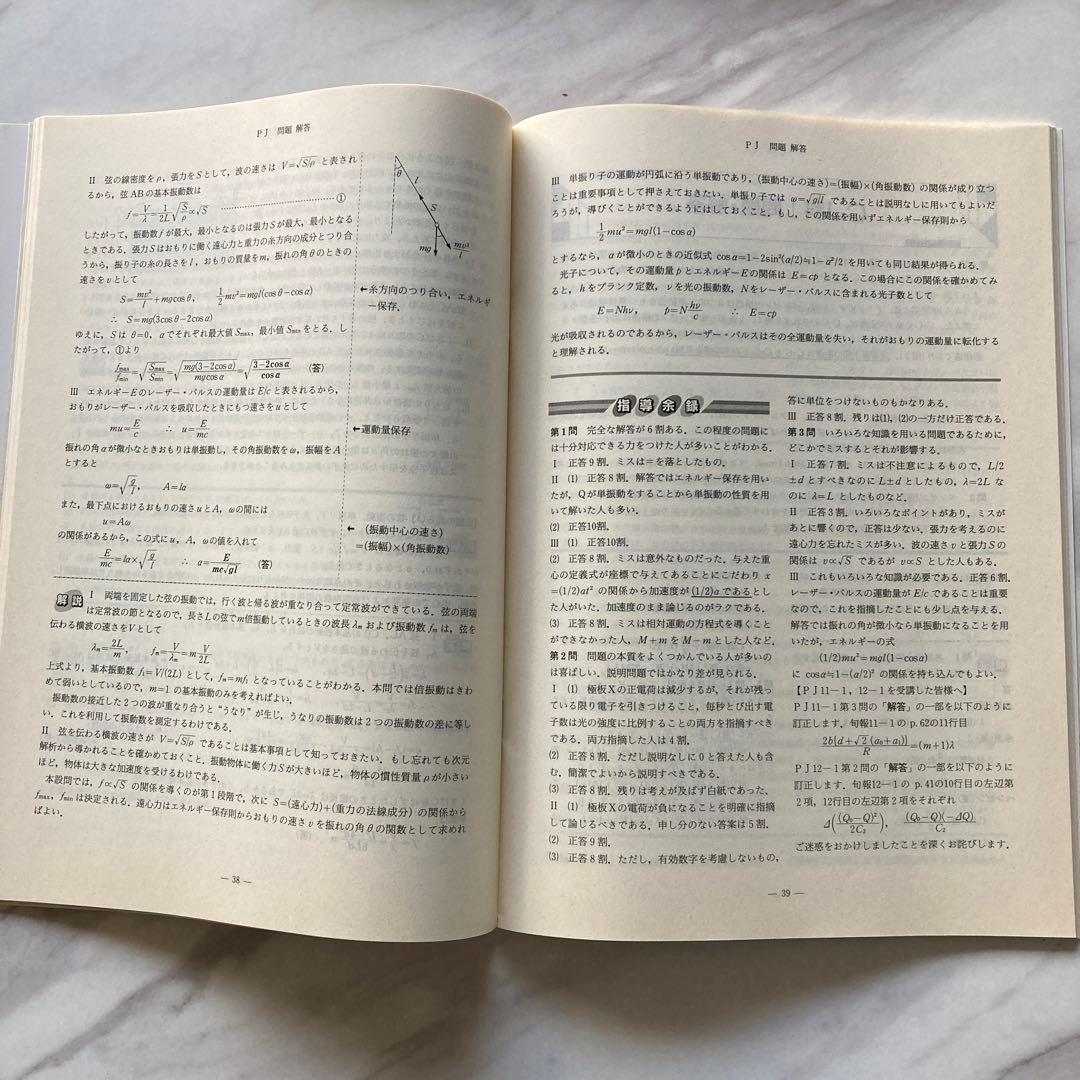 PJ 問題 解答
II 弦の線密度をρ，張力をSとして，波の速さは V=√(S/ρ) と表され
るから，弦ABの基本振動数は
f=V/λ=1/2L √(S/ρ)∝√S ……………………①
したがって，振動数fが最大，最小となるのは張力Sが最大，最小となる
ときである．張力Sはおもりに働く遠心力と重力の糸方向の成分とつり合
うから，振り子の糸の長さをl，おもりの質量をm，振れの角θのときの
速さをvとして
S=mv²/l+mgcosθ， 1/2 mv²=mgl(cosθ−cosα)
∴ S=mg(3cosθ−2cosα)
ゆえに，Sは θ=0，αでそれぞれ最大値Smax，最小値Sminをとる．し
たがって，①より
fmax/fmin=√(Smax/Smin)=√(mg(3−2cosα)/mgcosα)=√((3−2cosα)/cosα) (答)
III エネルギーEのレーザー・パルスの運動量はE/cと表されるから，
おもりがレーザー・パルスを吸収したときにもつ速さをuとして
mu=E/c ∴ u=E/mc
振れの角αが微小なときおもりは単振動し，その角振動数をω，振幅をA
とすると
ω=√(g/l)， A=lα
また，最下点におけるおもりの速さuとA，ωの間には
u=Aω
の関係があるから，この式にu，A，ωの値を入れて
E/mc=lα×√(g/l) ∴ α=E/mc√gl (答)
θ
l
S
mg
mv²/l
←糸方向のつり合い，エネルギ
ー保存．
←運動量保存
← (振動中心の速さ)
=(振幅)×(角振動数)
解説 I 両端を固定した弦の振動では，行く波と帰る波が重なり合って定常波ができている．弦の両端
は定常波の節となるので，長さLの弦でm倍振動しているときの波長λmおよび振動数fmは，弦を
伝わる横波の速さをVとして
λm=2L/m， fm=V/λm=m V/2L
上式より，基本振動数 f₁=V/(2L) として，fm=mf₁ となっていることがわかる．本問では倍振動はきわ
めて弱いとしているので，m=1の基本振動のみを考えればよい．
振動数の接近した2つの波が重なり合うと“うなり”が生じ，うなりの振動数は2つの振動数の差に等し
い．これを利用して振動数を測定するわけである．
II 弦を伝わる横波の速さが V=√(S/ρ) であることは基本事項として知っておきたい．もし忘れても次元
解析から導かれることを確かめておくこと．振動物体に働く力Sが大きいほど，物体の慣性質量ρが小さい
ほど，物体は大きな加速度を受けるわけである．
本設問では，f∝√S の関係を導くのが第1段階で，次に S=(遠心力)+(重力の法線成分) の関係から
fmax，fminは決定される．遠心力はエネルギー保存則からおもりの速さvを振れの角θの関数として求めれ
ばよい．
— 38 —
PJ 問題 解答
III 単振り子の運動が円弧に沿う単振動であり，(振動中心の速さ)=(振幅)×(角振動数) の関係が成り立つ
ことは重要事項として押さえておきたい．単振り子では ω=√(g/l) であることは説明なしに用いてもよいだ
ろうが，導びくことができるようにはしておくこと．もし，この関係を用いずエネルギー保存則から
1/2 mu²=mgl(1−cosα)
とするなら，αが微小のときの近似式 cosα=1−2sin²(α/2)≒1−α²/2 を用いても同じ結果が得られる．
光子について，その運動量pとエネルギーEの関係は E=cp となる．この場合にこの関係を確かめてみ
ると，hをプランク定数，νを光の振動数，Nをレーザー・パルスに含まれる光子数として
E=Nhν， p=N hν/c ∴ E=cp
光が吸収されるのであるから，レーザー・パルスはその全運動量を失い，それがおもりの運動量に転化する
と理解される．
指導余録
第1問 完全な解答が6割ある．この程度の問題に
は十分対応できる力をつけた人が多いことがわかる．
I 正答9割．ミスは=を落としたもの．
II (1) 正答8割．解答ではエネルギー保存を用い
たが，Qが単振動をすることから単振動の性質を用
いて解いた人も多い．
(2) 正答10割．
III (1) 正答10割．
(2) 正答8割．ミスは意外なものだった．与えた重
心の定義式が座標で与えてあることにこだわり x
=(1/2)at² の関係から加速度が(1/2)aであるとし
た人がいた．加速度のまま論じるのがラクである．
(3) 正答8割．ミスは相対運動の方程式を導くこと
ができなかった人，M+mをM−mとした人など．
第2問 問題の本質をよくつかんでいる人が多いの
は喜ばしい．説明問題ではかなり差が見られる．
I (1) 極板Xの正電荷は減少するが，それが残っ
ている限り電子を引きつけること，毎秒とび出す電
子数は光の強度に比例することの両方を指摘すべき
である．両方指摘した人は4割．
(2) 正答8割．ただし説明なしに0と答えた人も含
む．簡潔でよいから説明すべきである．
(3) 正答8割．残りは考えが及ばず白紙であった．
II (1) 極板Xの電荷が負になることを明確に指摘
して論じるべきである．申し分のない答案は5割．
(2) 正答9割．
(3) 正答8割．ただし，有効数字を考慮しないもの，
答に単位をつけないものもかなりある．
III 正答8割．残りは(1)，(2)の一方だけ正答である．
第3問 いろいろな知識を用いる問題であるために，
どこかでミスするとそれが影響する．
I 正答7割．ミスは不注意によるもので，L/2
±dとすべきなのにL±dとしたもの，λ=2Lな
のに λ=L としたものなど．
II 正答3割．いろいろポイントがあり，ミスが
あとに響くので，正答は少ない．張力を考えるのに
遠心力を忘れたミスが多い．波の速さvと張力Sの
関係は v∝√S であるが v∝S とした人もある．
III これもいろいろ知識が必要である．正答6割．
レーザー・パルスの運動量が E/c であることは重要
なので，これを指摘したことにも少し点を与える．
解答では振れの角が微小なら単振動になることを用
いたが，エネルギーの式
(1/2)mu²=mgl(1−cosα)
に cosα≒1−(α/2)² の関係を持ち込んでもよい．
【PJ11−1，12−1を受講した皆様へ】
PJ11−1第3問の「解答」の一部を以下のように
訂正します．旬報11−1の p.62の11行目
2b{d+√2(a₀+a₁)}/R=(m+1)λ
PJ12−1第2問の「解答」の一部を以下のように
訂正します．旬報12−1の p.41の10行目の左辺第
2項，12行目の左辺第2項をそれぞれ
Δ((Q₀−Q)²/2C₂)， (Q₀−Q)(−ΔQ)/C₂
ご迷惑をおかけしましたことを深くお詫びします．
— 39 —